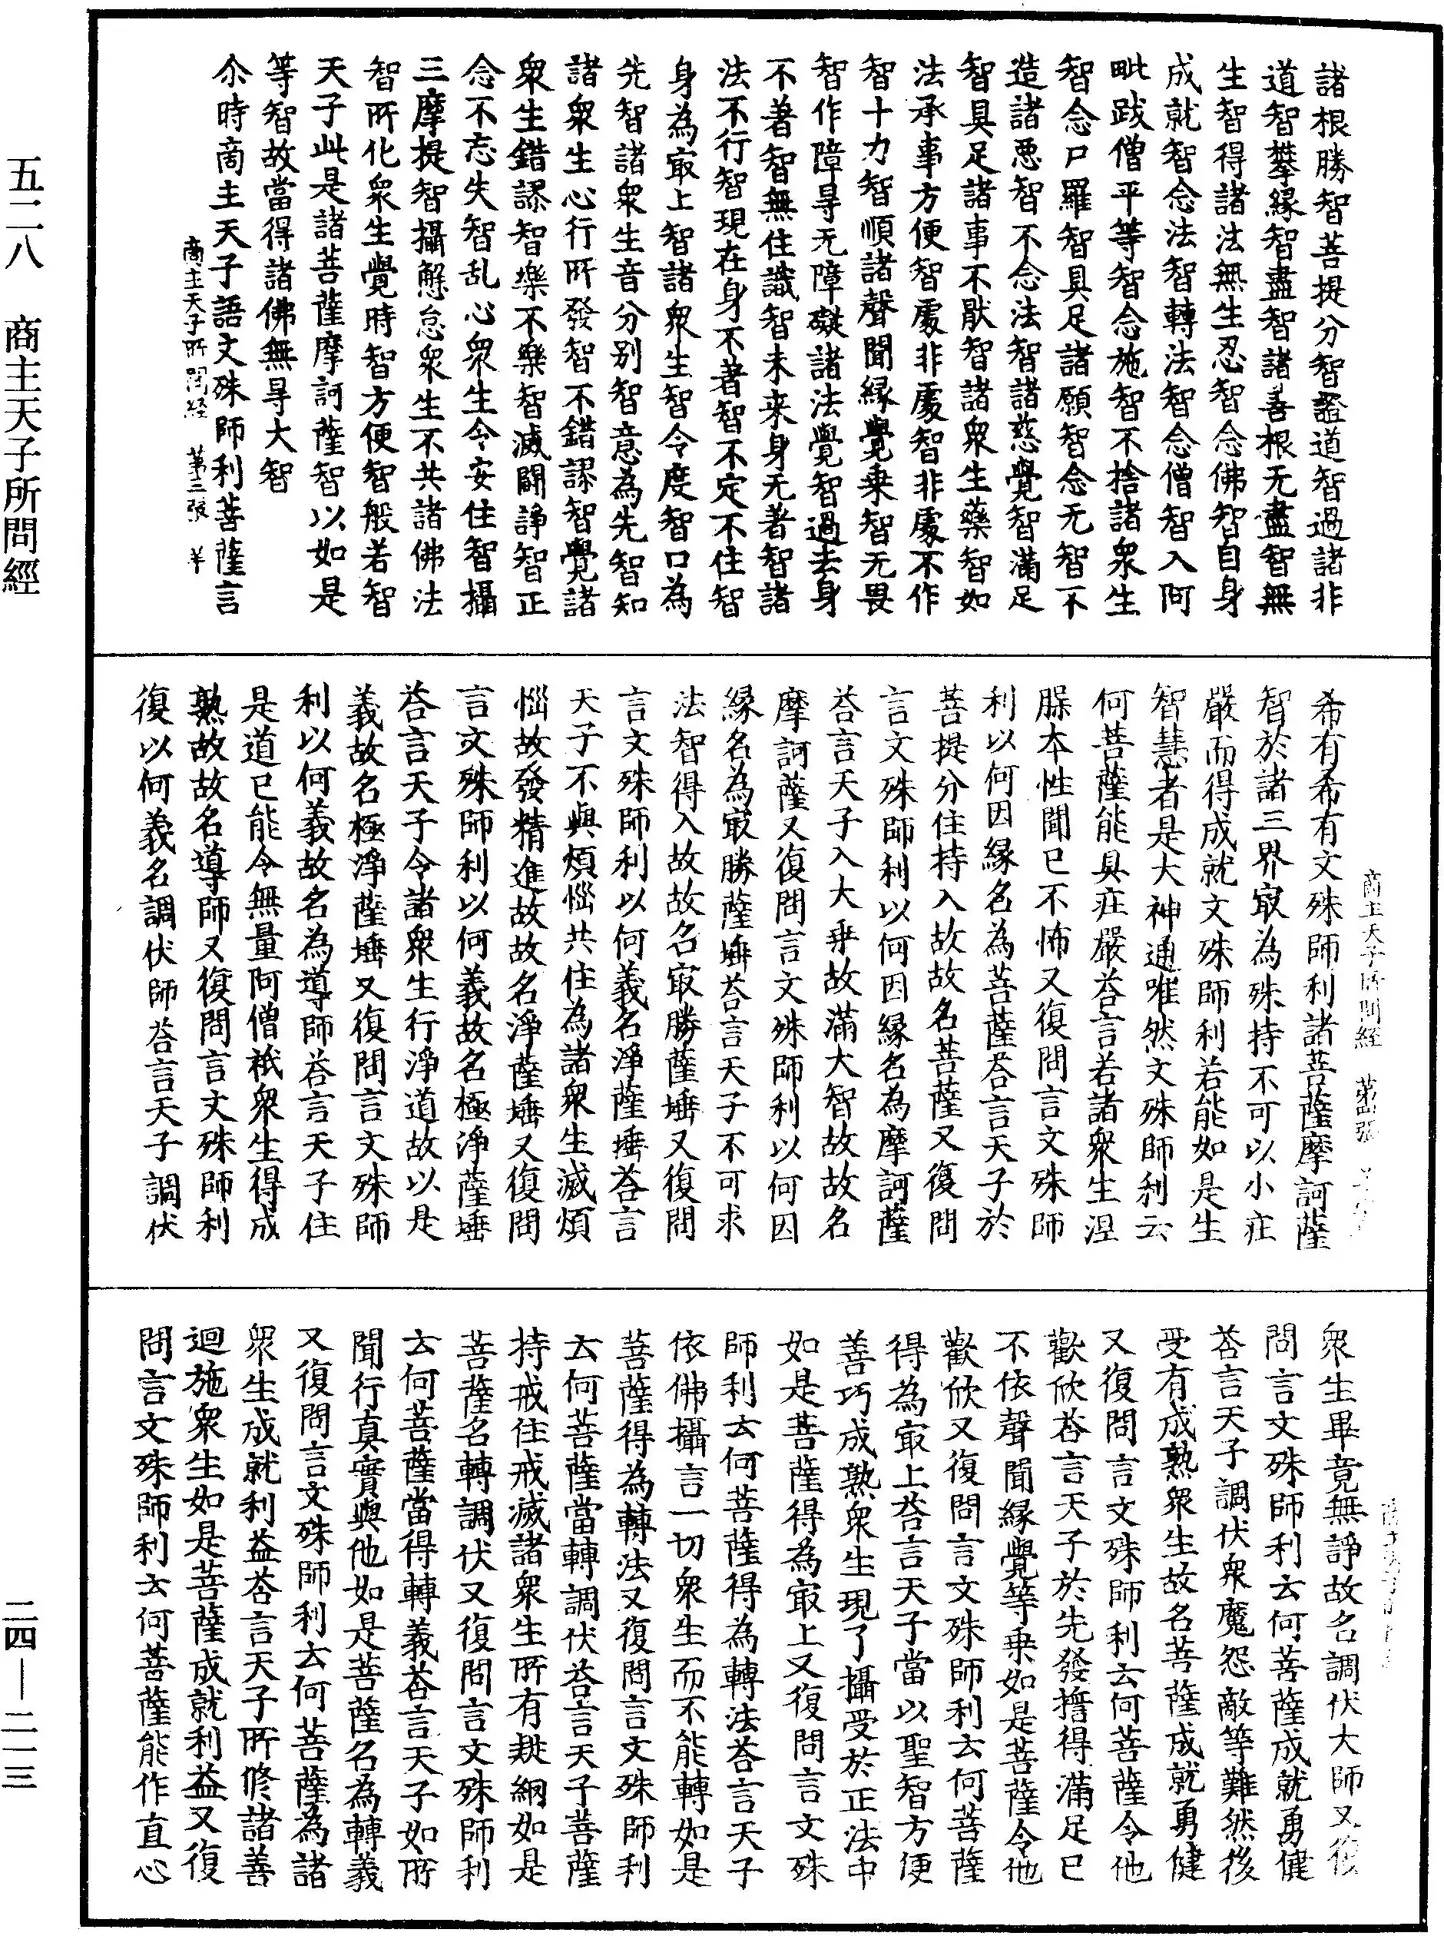 諸根勝智菩提分智諡道智過諸非
道智攀緣智盡智諸善根无盡智無
生智得諸法無生忍智念佛智自身
成就智念法智轉法智念僧智入阿
毗跋僧平等智念施智不捨諸衆生
智念尸羅智具足諸願智念无智不
造諸悪智不念法智諸慈覺智滿足
智具足諸事不猒智諸衆生藥智如
法承事方便智處非處智非處不作
智十力智順諸聲聞緣覺乗智无畏
智作障㝵无障礙諸法覺智過去身
不著智無住識智未来身无著智諸
法不行智現在身不著智不定不住智
身為㝡上智諸衆生智令度智口為
先智諸衆生音分别智意為先智知
諸衆生心行所發智不錯謬智覺諸
衆生錯謬智樂不樂智滅闘諍智正
念不忘失智乱心衆生令安住智攝
三摩提智攝懈怠衆生不共諸佛法
智所化衆生覺時智方便智般若智
天子此是諸菩薩摩訶薩智以如是
等智故當得諸佛無㝵大智
尒時商主天子語文殊師利菩薩言
商主天子所問経　第三張　羊
商主天子所問經　第四張
希有希有文殊師利諸菩薩摩訶薩
智於諸三界㝡為殊持不可以小庄
嚴而得成就文殊師利若能如是生
智慧者是大神通唯然文殊師利云
何菩薩能具庄嚴荅言若諸衆生涅
脲本性聞已不怖又復問言文殊師
利以何因緣名為菩薩荅言天子於
菩提分住持入故故名菩薩又復問
言文殊師利以何因緣名為摩訶薩
荅言天子入大乗故滿大智故故名
摩訶薩又復問言文殊師利以何因
緣名為㝡勝薩埵荅言天子不可求
法智得入故故名㝡勝薩埵又復問
言文殊師利以何義名淨薩埵荅言
天子不與煩惱共住為諸衆生滅煩
惱故發精進故故名淨薩埵又復問
言文殊師利以何義故名極淨薩埵
荅言天子令諸衆生行淨道故以是
義故名極淨薩埵又復問言文殊師
利以何義故名為導師荅言天子住
是道已能令無量阿僧祇衆生得成
熟故故名導師又復問言文殊師利
復以何義名調伏師荅言天子調伏
衆生畢竟無諍故名調伏大師又復
問言文殊師利云何菩薩成就勇健
荅言天子調伏衆魔怨敵等難然後
受有成熟衆生故名菩薩成就勇健
又復問言文殊師利云何菩薩令他
歡欣荅言天子於先發擔得滿足已
不依聲聞緣覺等乗如是菩薩令他
歡欣又復問言文殊師利云何菩薩
得為㝡上荅言天子當以聖智方便
善巧成熟衆生現了攝受於正法中
如是菩薩得為㝡上又復問言文殊
師利云何菩薩得為轉法荅言天子
依佛攝言一切衆生而不能轉如是
菩薩得為轉法又復問言文殊師利
云何菩薩當轉調伏荅言天子菩薩
持戒住戒滅諸衆生所有羝網如是
菩薩名轉調伏又復問言文殊師利
云何菩薩當得轉義荅言天子如所
聞行真實與他如是菩薩名為轉義
又復問言文殊師利云何菩薩為諸
衆生成就利益荅言天子所修諸善
迴施衆生如是菩薩成就利益又復
問言文殊師利云何菩薩能作直心
五二八　商主天子所問經
二四—二一三